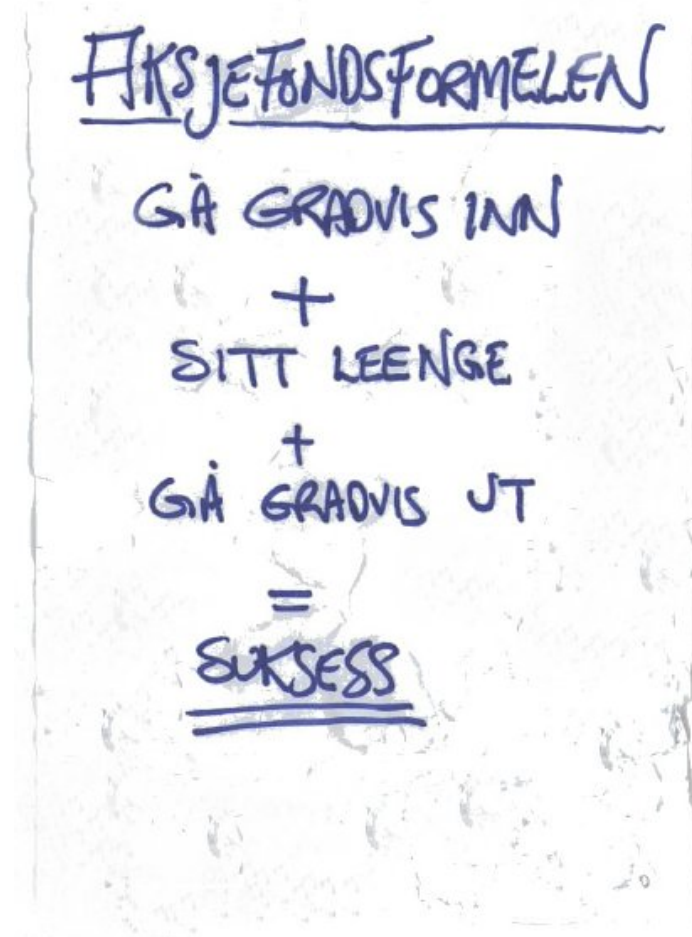 AKSJEFONDSFORMELEN
GÅ GRADVIS INN
+
SITT LEENGE
+
GÅ GRADVIS UT
=
SUKSESS